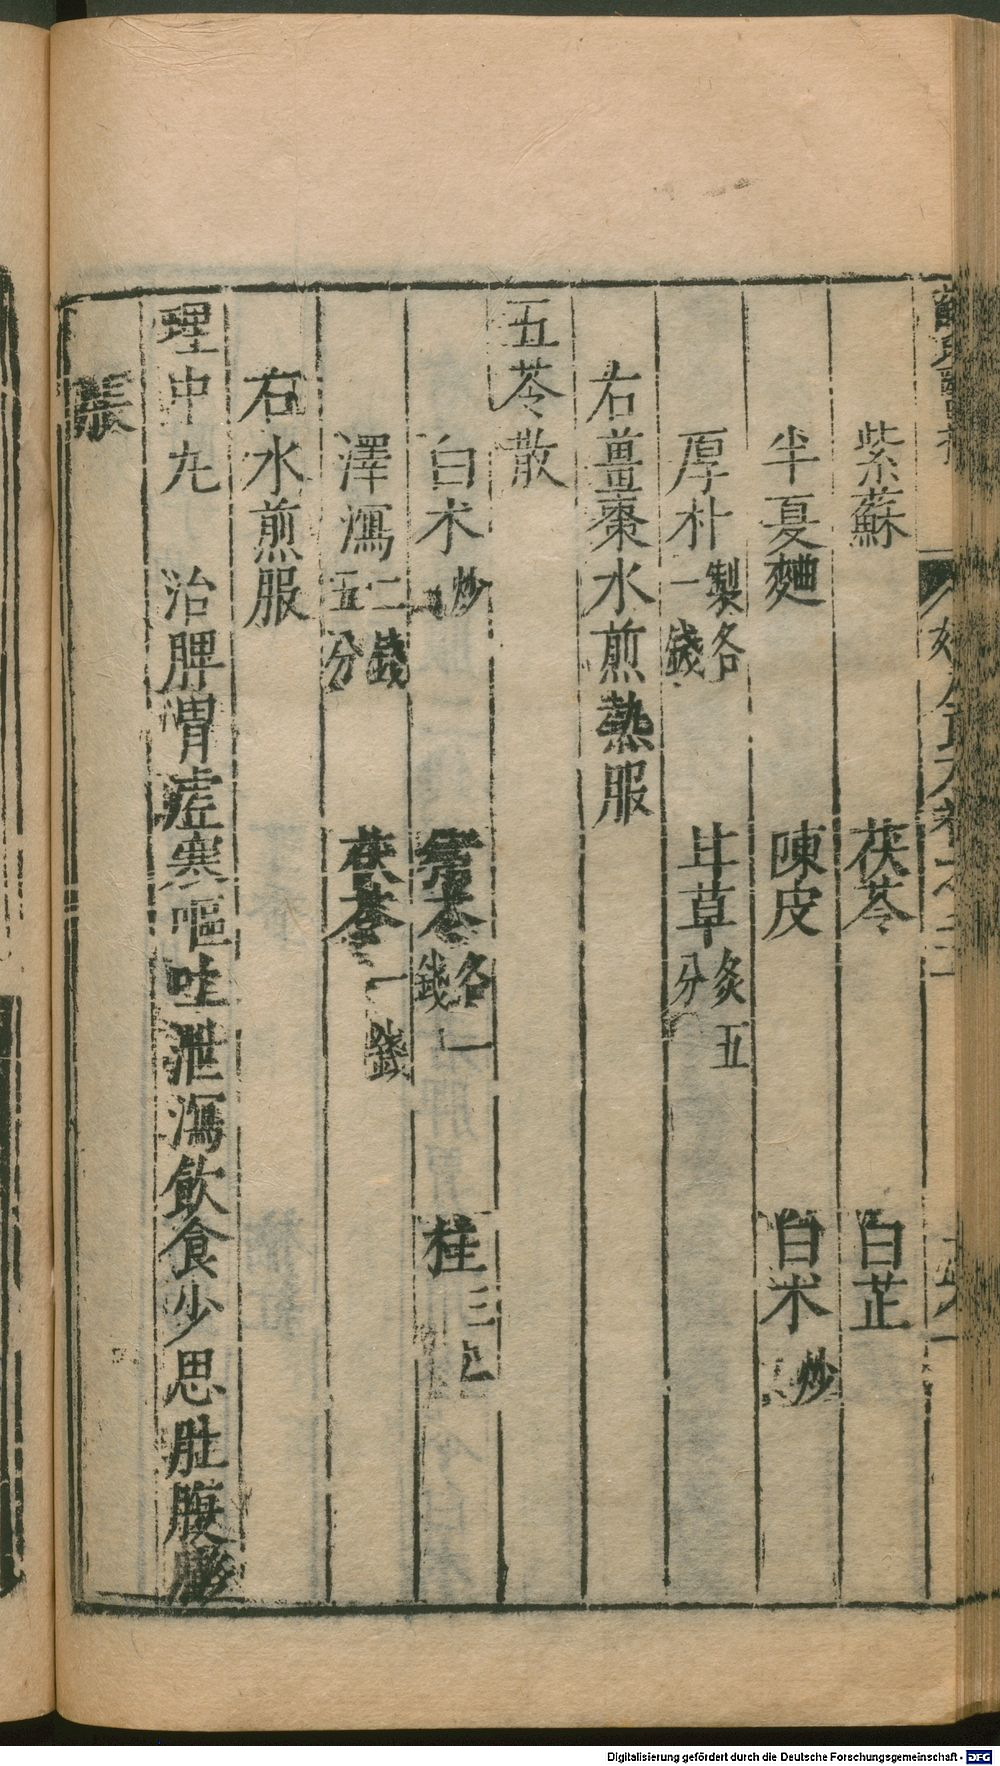 紫蘇 茯苓 白芷
半夏麯 陳皮 白术炒
厚朴製各一錢 甘草炙五分
右薑棗水煎熱服
五苓散
白术炒 各一錢 桂三
澤瀉二錢五分 茯苓一錢
右水煎服
理中丸 治脾胃虛寒嘔吐泄瀉飲食少思肚腹膨
脹
Digitalisierung gefördert durch die Deutsche Forschungsgemeinschaft - DFG